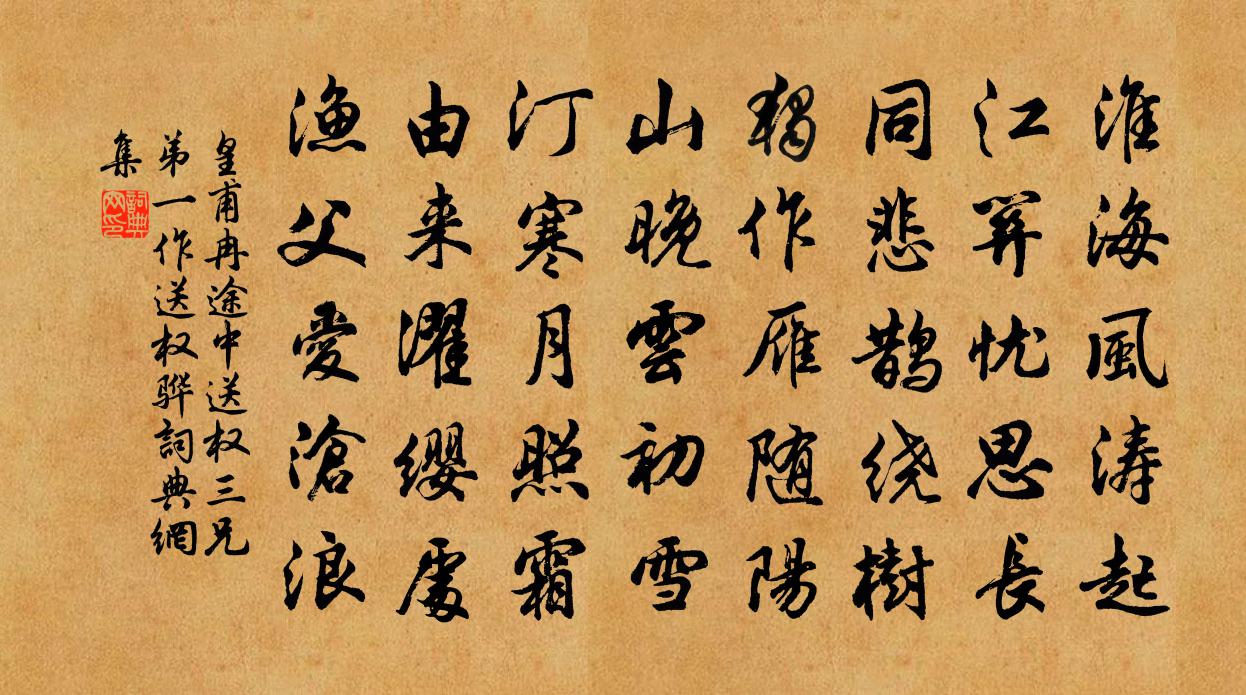 淮海風涛起
江関忧思長
同悲鵲绕樹
獨作雁随陽
山晚雲初雪
汀寒月照霜
由来濯缨處
渔父愛滄浪
皇甫冉途中送权三兄
弟一作送权骅詞典網
集
詞典網印